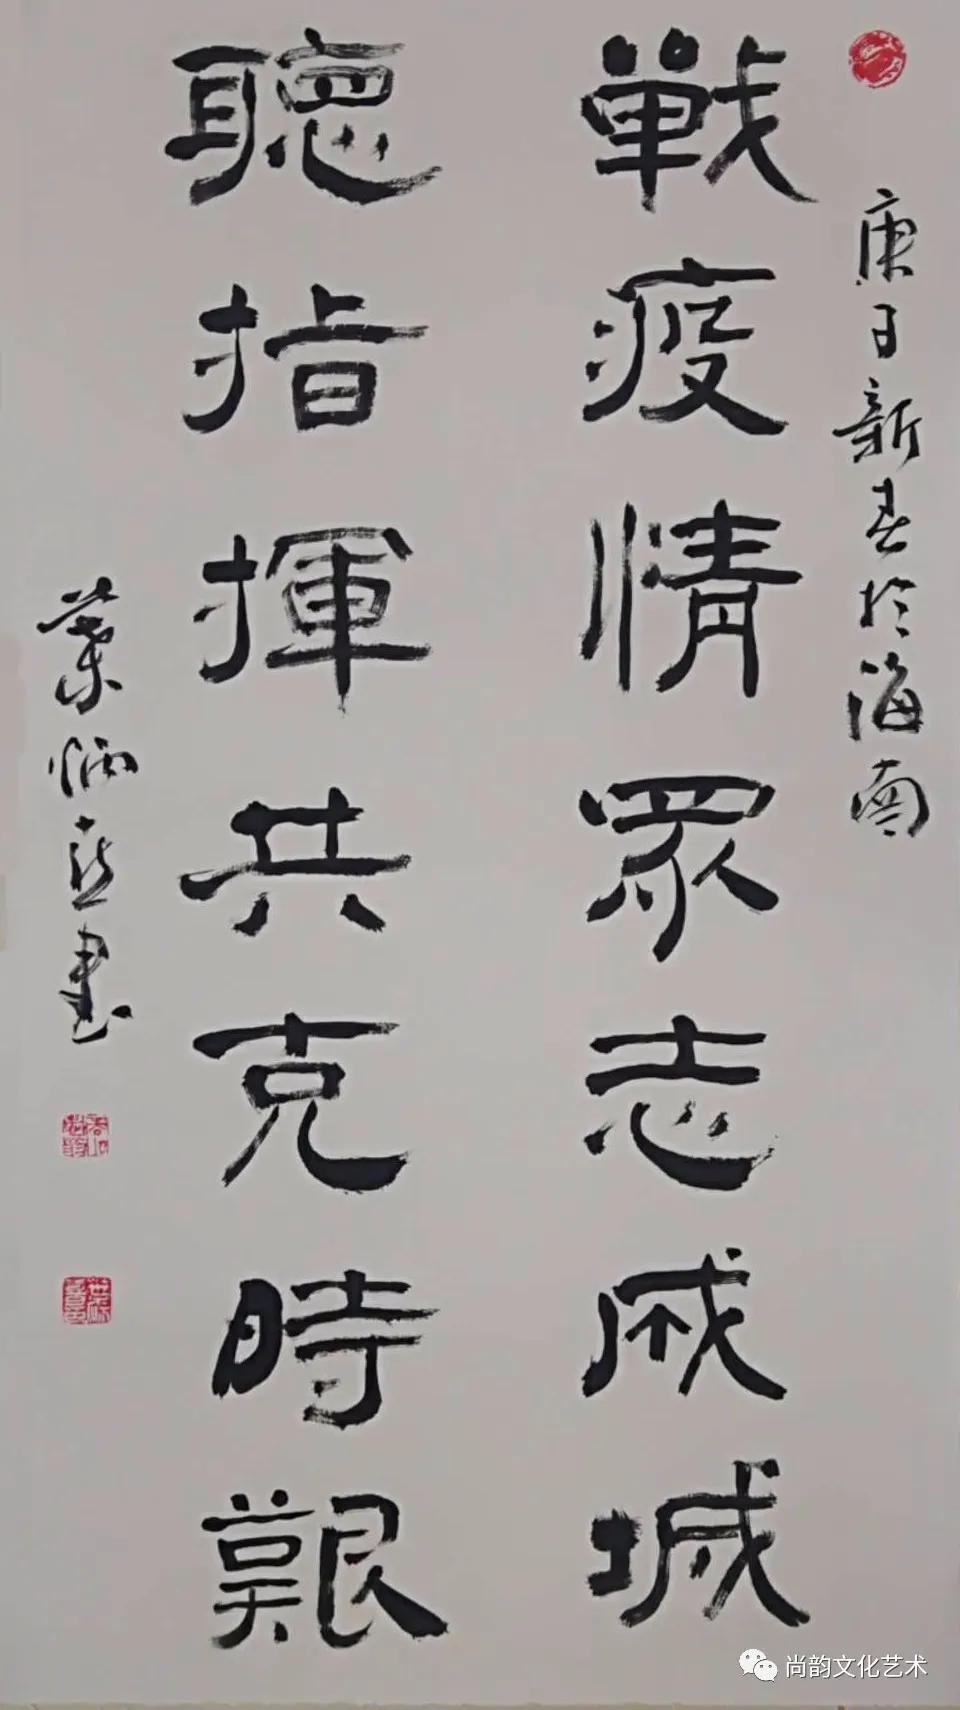 庚子新春於海南
戰疫情眾志成城
聽指揮共克時艱
葉炳熹書
尚韵文化艺术